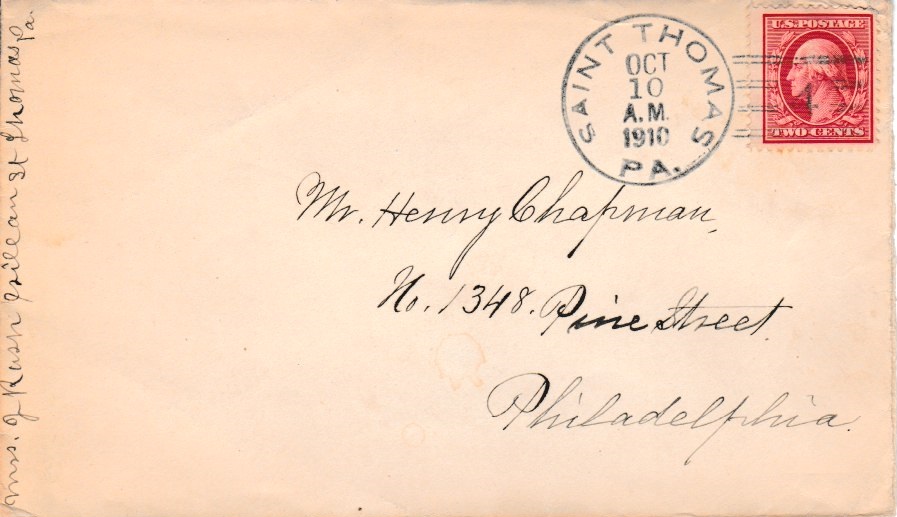 SAINT THOMAS
OCT
10
A.M.
1910
PA.
U.S. POSTAGE
1
TWO CENTS
Mr. Henry Chapman,
No. 1348. Pine Street
Philadelphia.
Mrs. J Rush Gillan St Thomas
Pa.